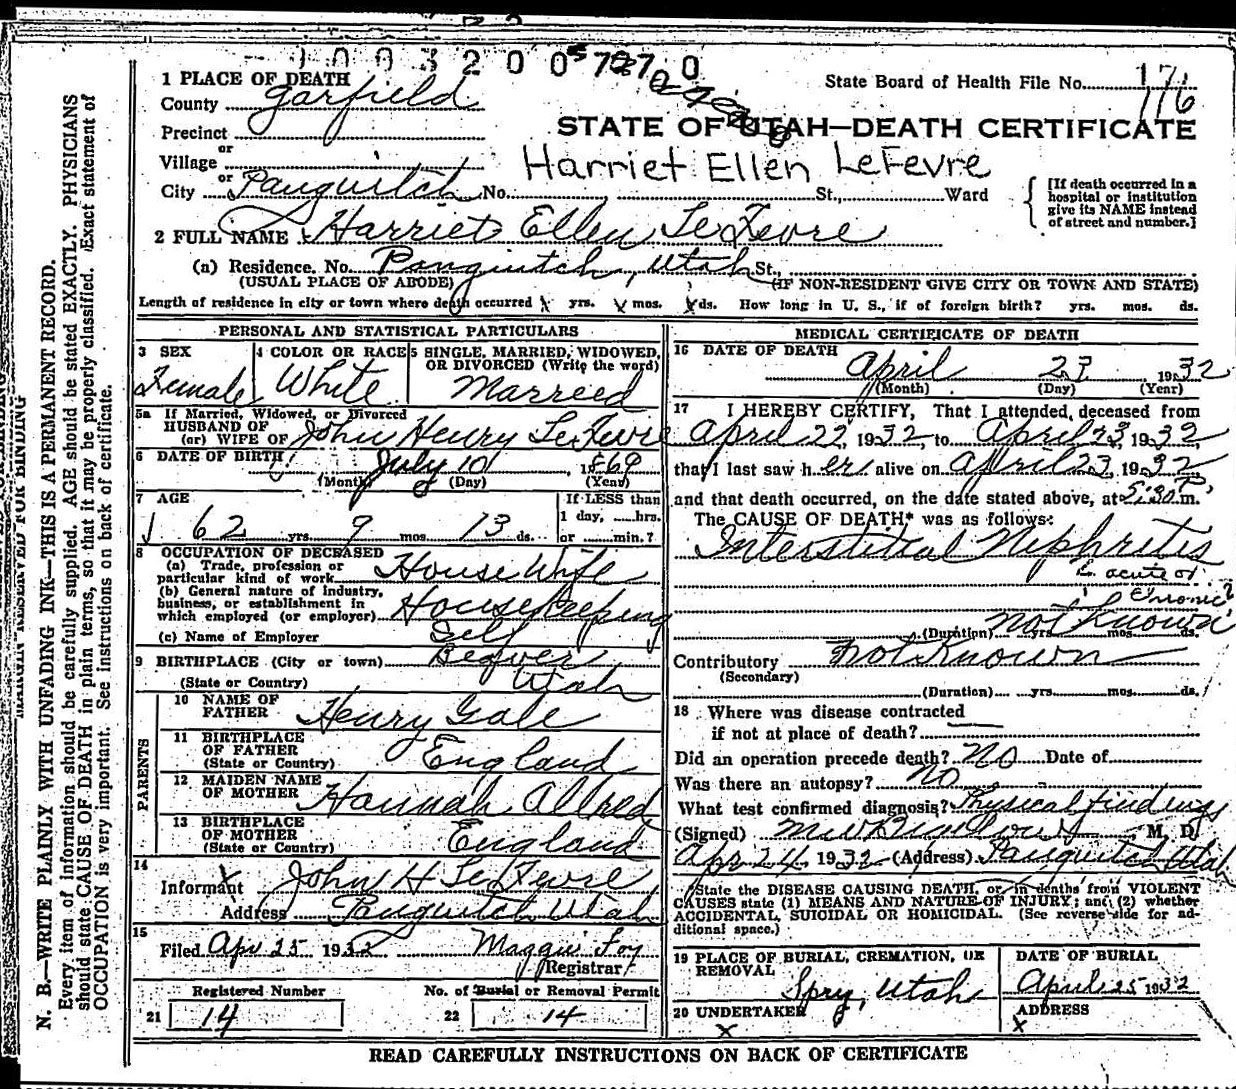 1003200 5 70
1 PLACE OF DEATH
State Board of Health File No. 176
116
County Garfield
Precinct
or
STATE OF UTAH—DEATH CERTIFICATE
Village
Harriet Ellen LeFevre
or
City Panguitch No. St., Ward
[If death occurred in a hospital or institution give its NAME instead of street and number.]
2 FULL NAME Harriet Ellen LeFevre
(a) Residence. No. Panguitch, Utah St.,
(USUAL PLACE OF ABODE) (IF NON-RESIDENT GIVE CITY OR TOWN AND STATE)
Length of residence in city or town where death occurred yrs. mos. ds. How long in U. S., if of foreign birth? yrs. mos. ds.
PERSONAL AND STATISTICAL PARTICULARS
3 SEX
Female
4 COLOR OR RACE
White
5 SINGLE, MARRIED, WIDOWED,
OR DIVORCED (Write the word)
Marreed
5a If Married, Widowed, or Divorced
HUSBAND OF
(or) WIFE OF John Henry LeFevre
6 DATE OF BIRTH July 10, 1869
(Month) (Day) (Year)
7 AGE
62 yrs. 9 mos. 13 ds.
If LESS than
1 day, hrs.
or min.?
8 OCCUPATION OF DECEASED
(a) Trade, profession or
particular kind of work House Wife
(b) General nature of industry,
business, or establishment in
which employed (or employer) Housekeeping
(c) Name of Employer Self
9 BIRTHPLACE (City or town) Beaver
(State or Country) Utah
PARENTS
10 NAME OF
FATHER Henry Gale
11 BIRTHPLACE
OF FATHER
(State or Country) England
12 MAIDEN NAME
OF MOTHER Hannah Allred
13 BIRTHPLACE
OF MOTHER
(State or Country) England
14
Informant John H LeFevre
Address Panguitch Utah
15
Filed Apr 25 1932 Maggie Foy
Registrar
Registered Number No. of Burial or Removal Permit
21 14 22 14
MEDICAL CERTIFICATE OF DEATH
16 DATE OF DEATH
April 23, 1932
(Month) (Day) (Year)
17 I HEREBY CERTIFY, That I attended, deceased from
April 22, 1932 to April 23 1932
that I last saw her alive on April 23, 1932
and that death occurred, on the date stated above, at 5:30 P.m.
The CAUSE OF DEATH* was as follows:
Interstitial Nephritis
acute or
Chronic?
(Duration) not known yrs. mos. ds.
Contributory Not Known
(Secondary)
(Duration) yrs. mos. ds.
18 Where was disease contracted
if not at place of death?
Did an operation precede death? No Date of
Was there an autopsy? No
What test confirmed diagnosis? Physical findings
(Signed) M. D.
Apr 24, 1932 (Address) Panguitch Utah
State the DISEASE CAUSING DEATH, or, in deaths from VIOLENT
CAUSES state (1) MEANS AND NATURE OF INJURY; and (2) whether
ACCIDENTAL, SUICIDAL OR HOMICIDAL. (See reverse side for ad-
ditional space.)
19 PLACE OF BURIAL, CREMATION, OR
REMOVAL
Spry, Utah
DATE OF BURIAL
April 25 1932
20 UNDERTAKER
x
ADDRESS
x
READ CAREFULLY INSTRUCTIONS ON BACK OF CERTIFICATE
MARGIN RESERVED FOR BINDING
N. B.—WRITE PLAINLY WITH UNFADING INK—THIS IS A PERMANENT RECORD.
Every item of information should be carefully supplied. AGE should be stated EXACTLY. PHYSICIANS
should state CAUSE OF DEATH in plain terms, so that it may be properly classified. Exact statement of
OCCUPATION is very important. See instructions on back of certificate.